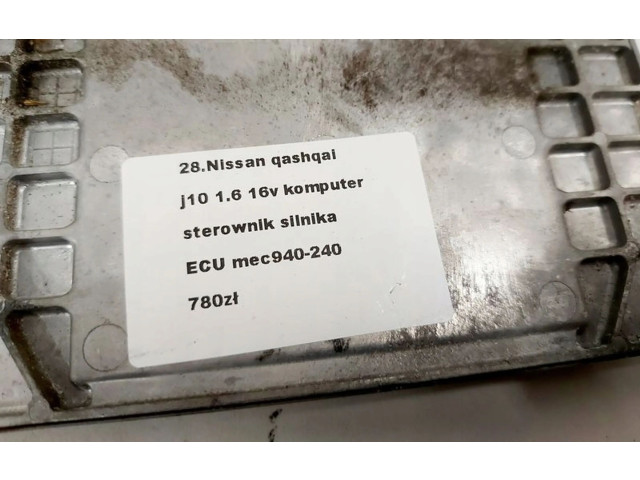 28.Nissan qashqai
j10 1.6 16v komputer
sterownik silnika
ECU mec940-240
780zł